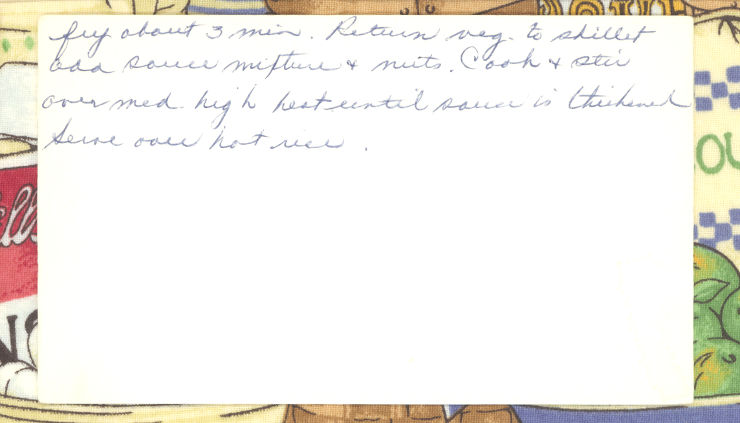 fry about 3 min. Return veg. to skillet
add sauce mixture + nuts. Cook + stir
over med. high heat until sauce is thickened
Serve over hot rice.